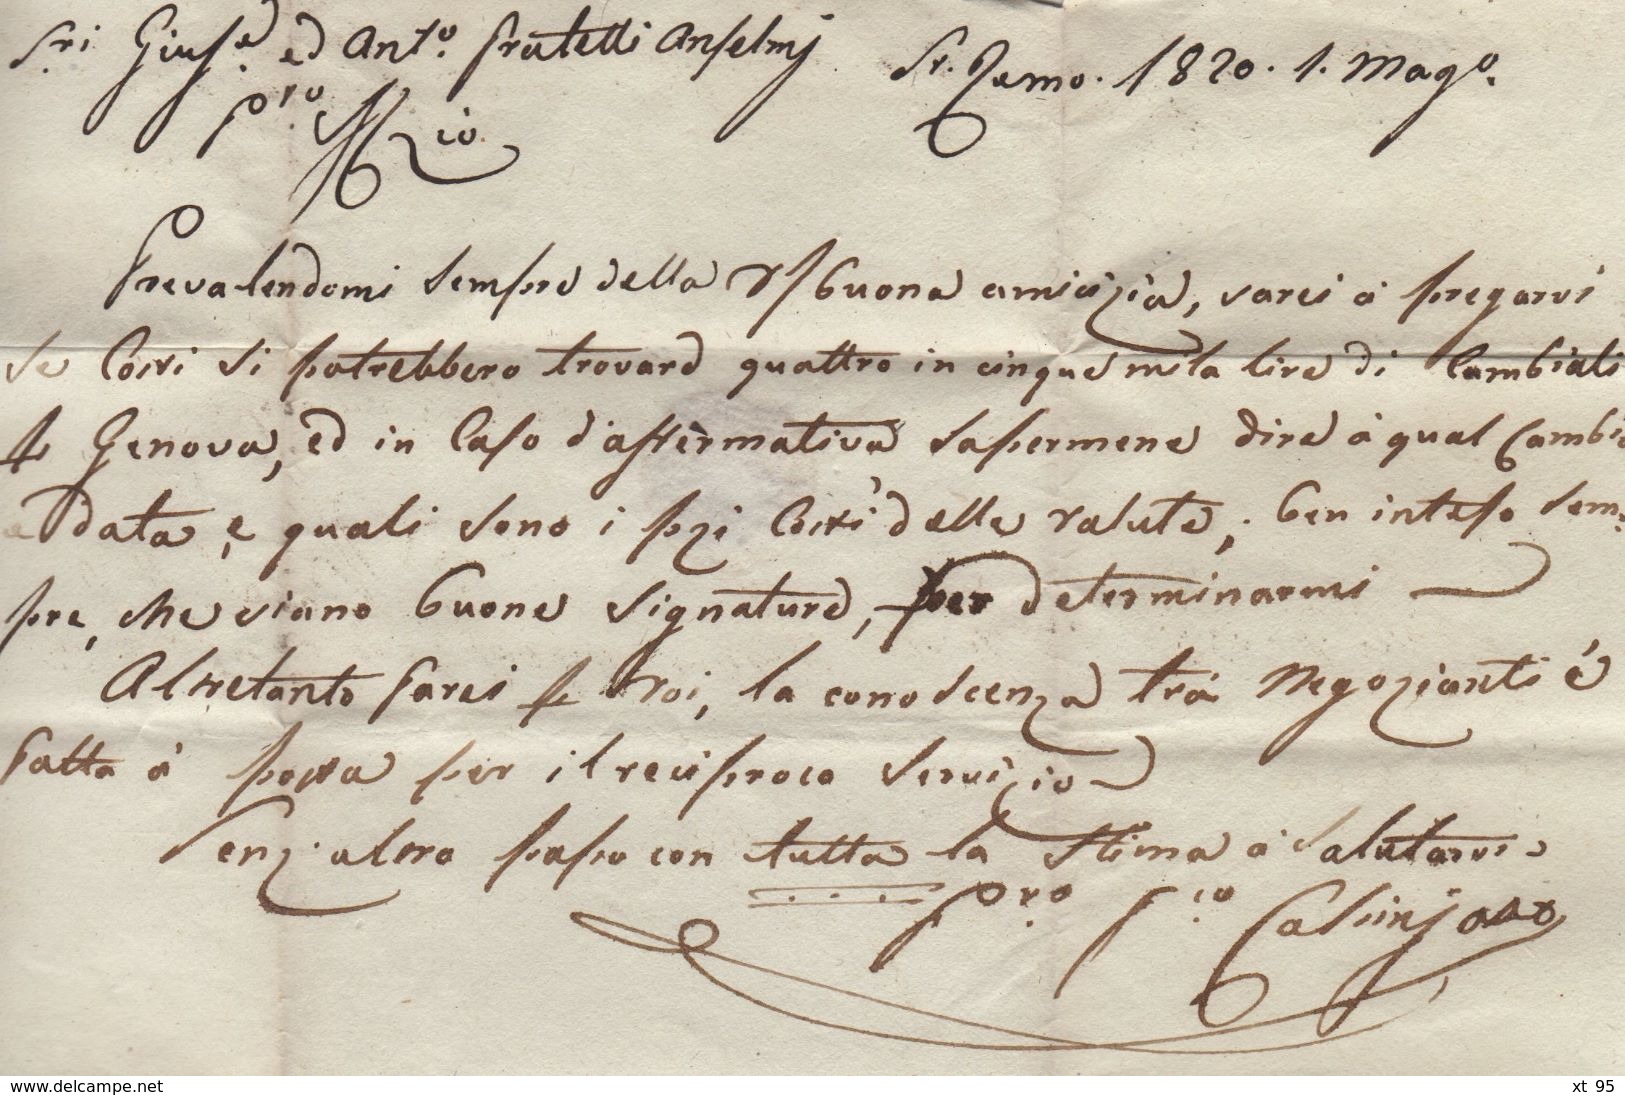 S.ri Giuse. ed Anto. Fratelli Anselmj Sn. Remo. 1820. 1. Mago.
Pro.
Prevalendomi sempre della buona amicizia, sarei à pregarvi
se Costì si potrebbero trovare quattro in cinque mila lire di Cambiali
p Genova, ed in Caso d'affermativa sapermene dire à qual Cambio
e data, e quali sono i pzi Costì delle valute, ben inteso sem:
pre, che siano buone signature, per determinarmi
Altretanto farei p Voi, la conoscenza trà Negozianti è
fatta à posta per il reciproco servizio
Senz'altro passo con tutta la stima à Salutarvi
Pro.
www.delcampe.net xt 95